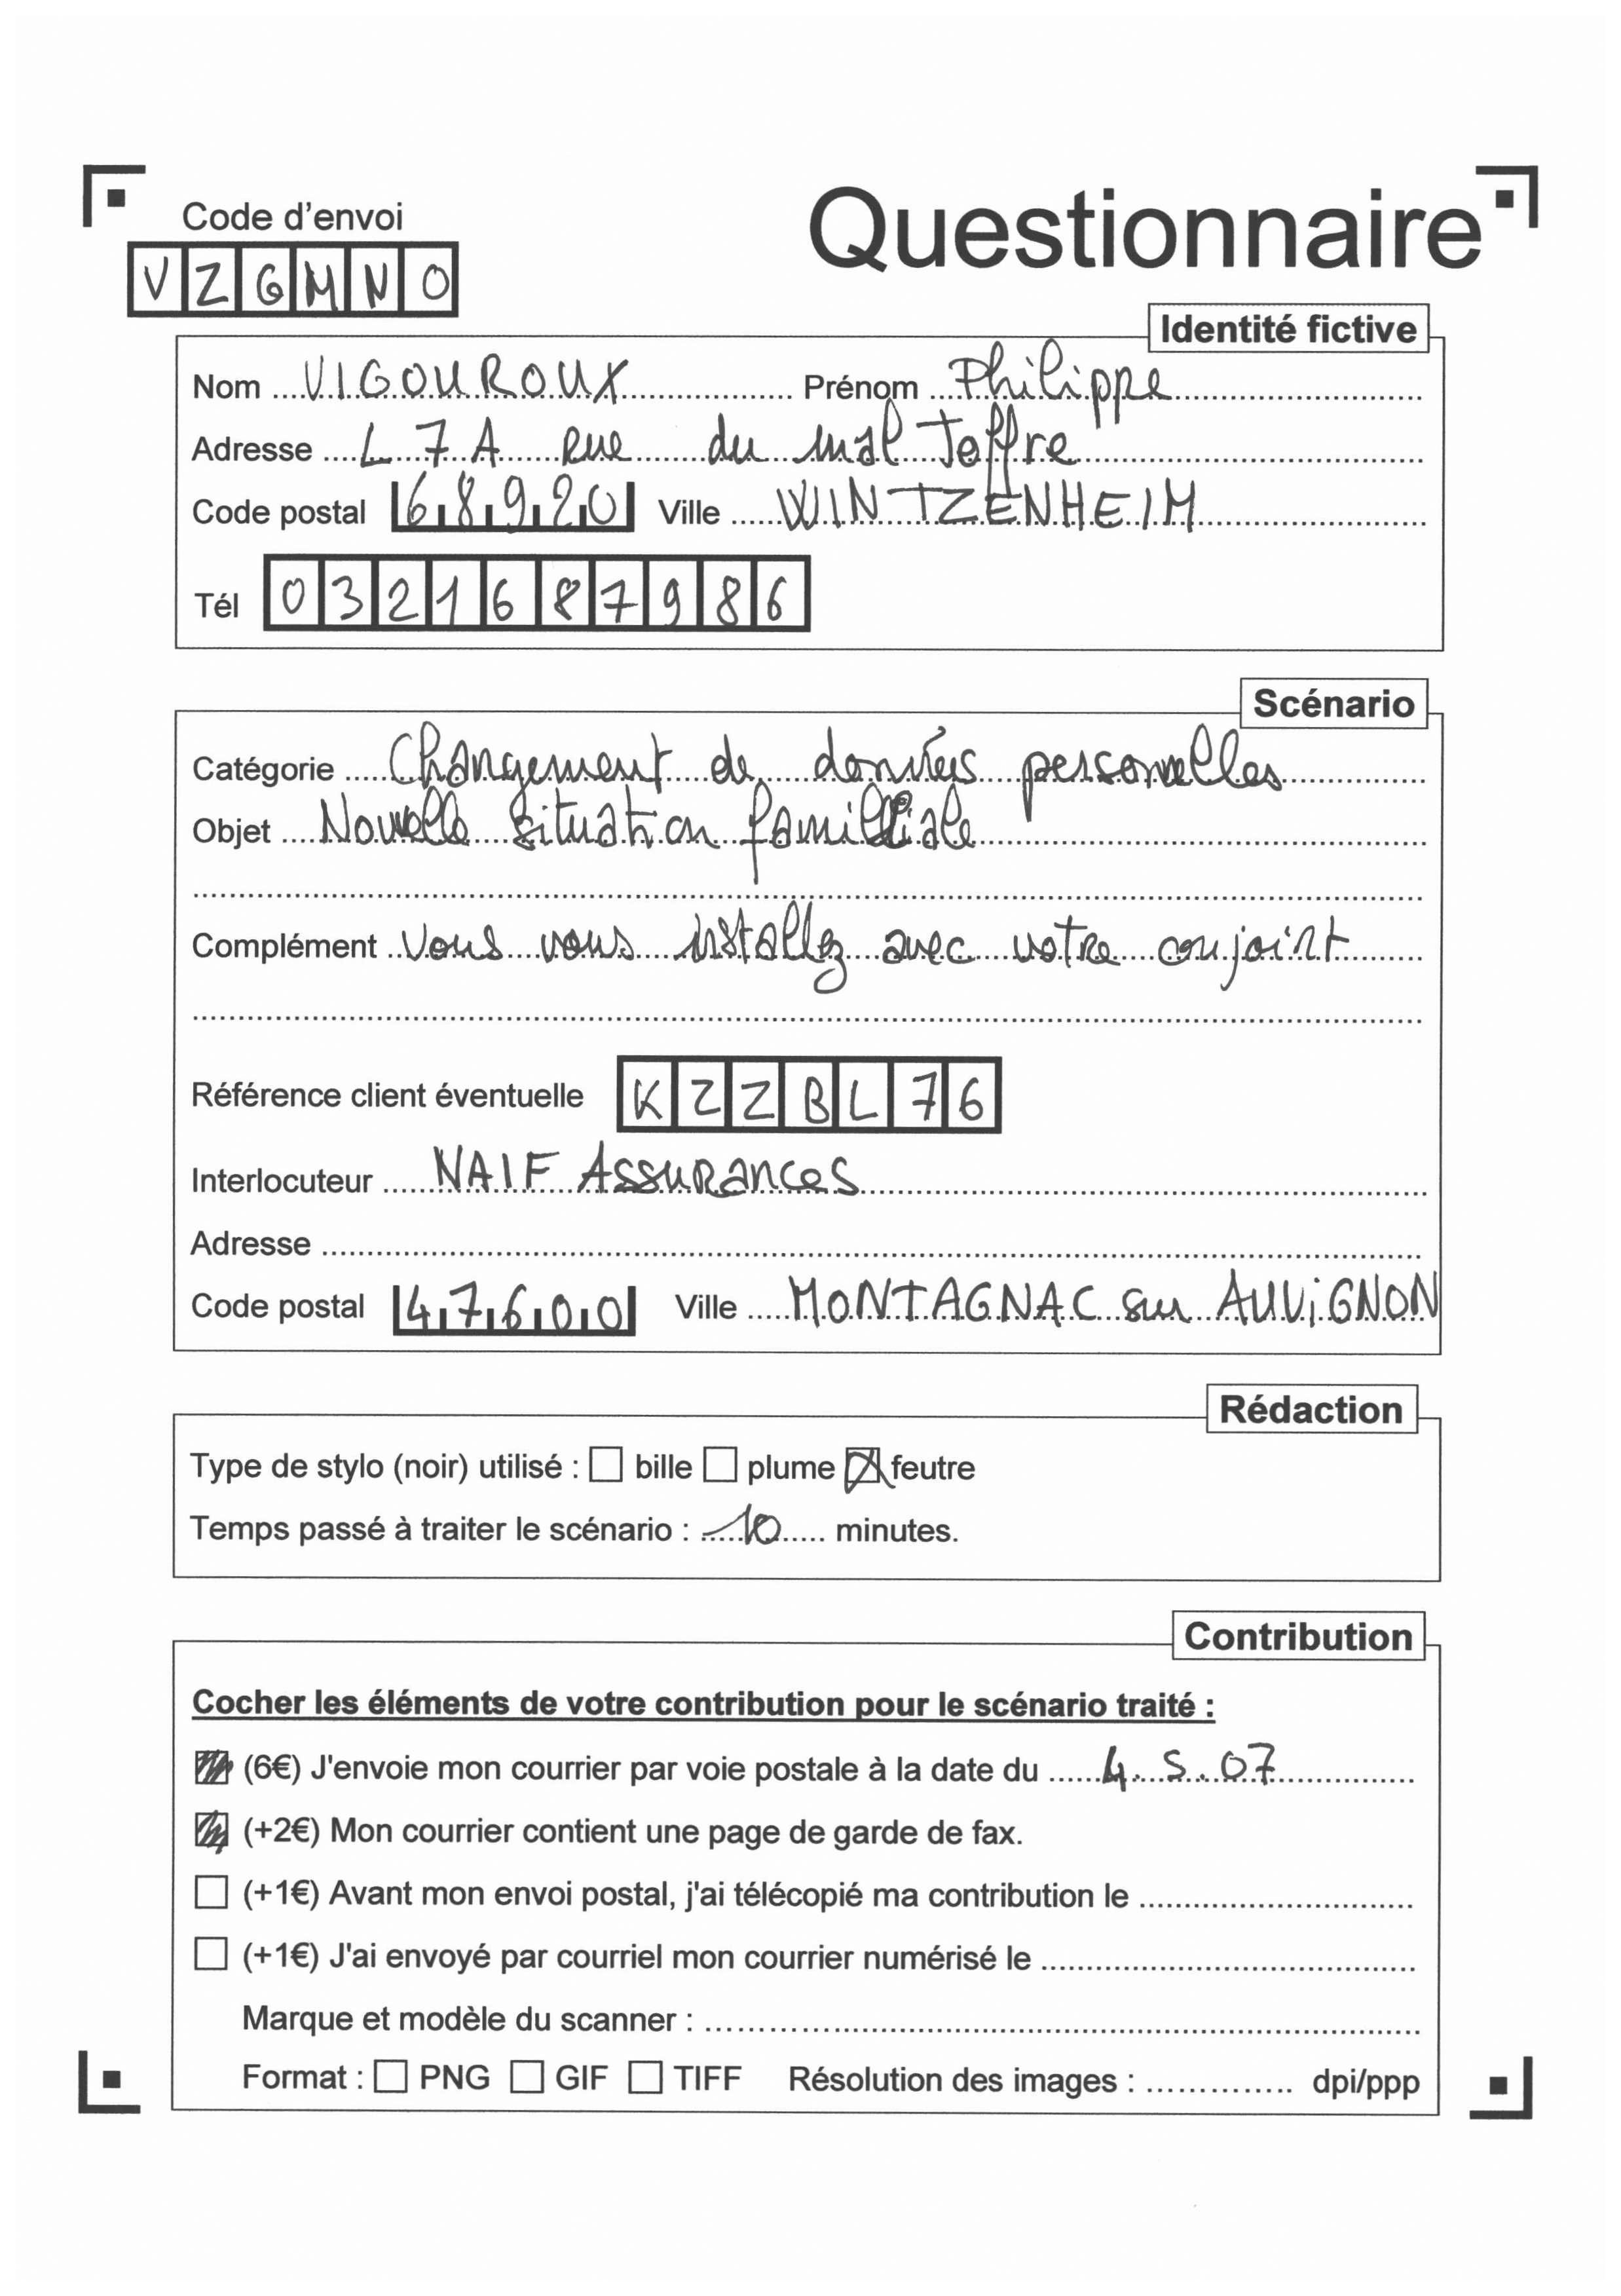 Code d'envoi
Questionnaire
VZGMNO
Identité fictive
Nom VIGOUROUX Prénom Philippe
Adresse L 7 A Rue du mal Joffre
Code postal 68920 Ville WINTZENHEIM
Tél 0321687986
Scénario
Catégorie Changement de données personnelles
Objet Nouvelle situation familiale
Complément Vous vous installez avec votre conjoint
Référence client éventuelle KZZBL76
Interlocuteur NAIF Assurances
Adresse
Code postal 47600 Ville MONTAGNAC sur AUVIGNON
Rédaction
Type de stylo (noir) utilisé : bille plume feutre
Temps passé à traiter le scénario : 10 minutes.
Contribution
Cocher les éléments de votre contribution pour le scénario traité :
(6€) J'envoie mon courrier par voie postale à la date du 4.5.07
(+2€) Mon courrier contient une page de garde de fax.
(+1€) Avant mon envoi postal, j'ai télécopié ma contribution le
(+1€) J'ai envoyé par courriel mon courrier numérisé le
Marque et modèle du scanner :
Format : PNG GIF TIFF Résolution des images : dpi/ppp